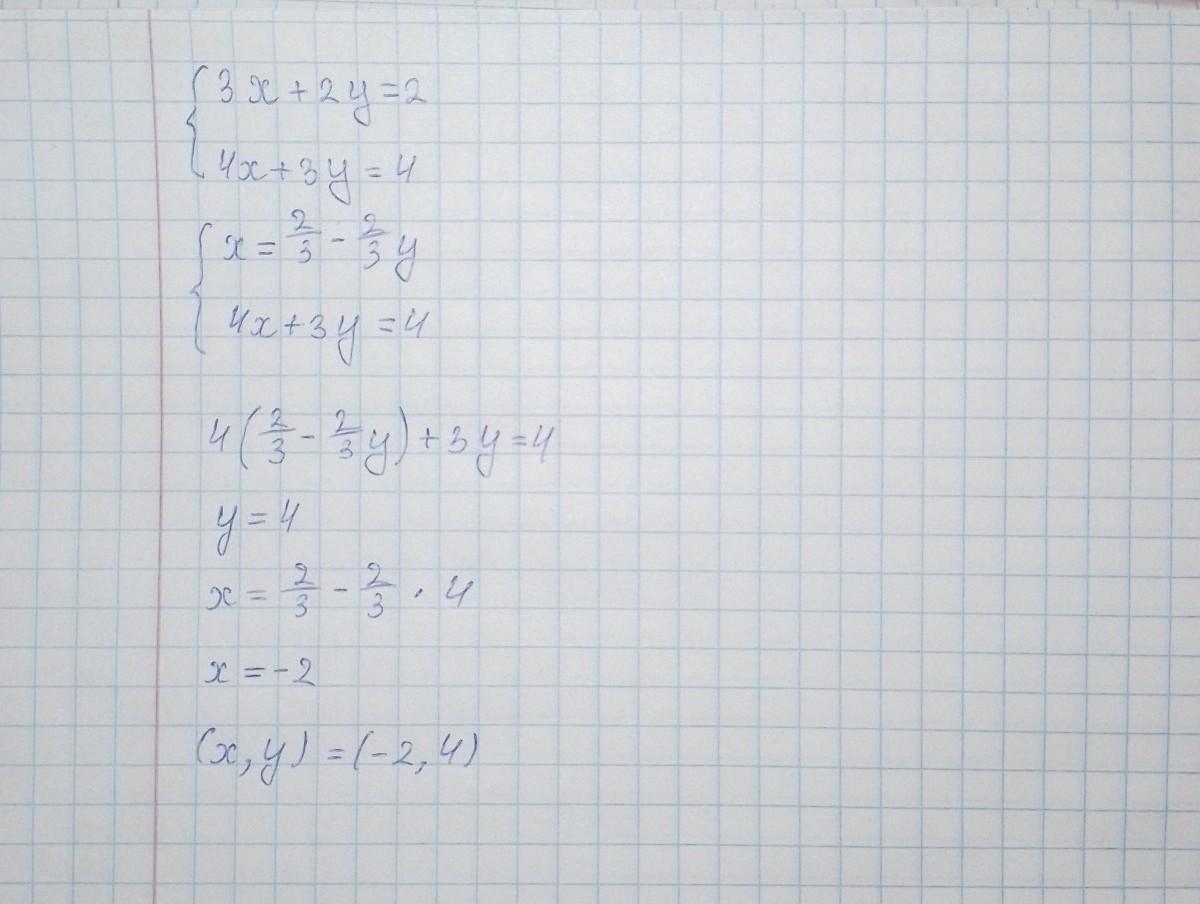 { 3x + 2y = 2
4x + 3y = 4
{ x = 2/3 - 2/3 y
4x + 3y = 4
4(2/3 - 2/3 y) + 3y = 4
y = 4
x = 2/3 - 2/3 · 4
x = -2
(x, y) = (-2, 4)